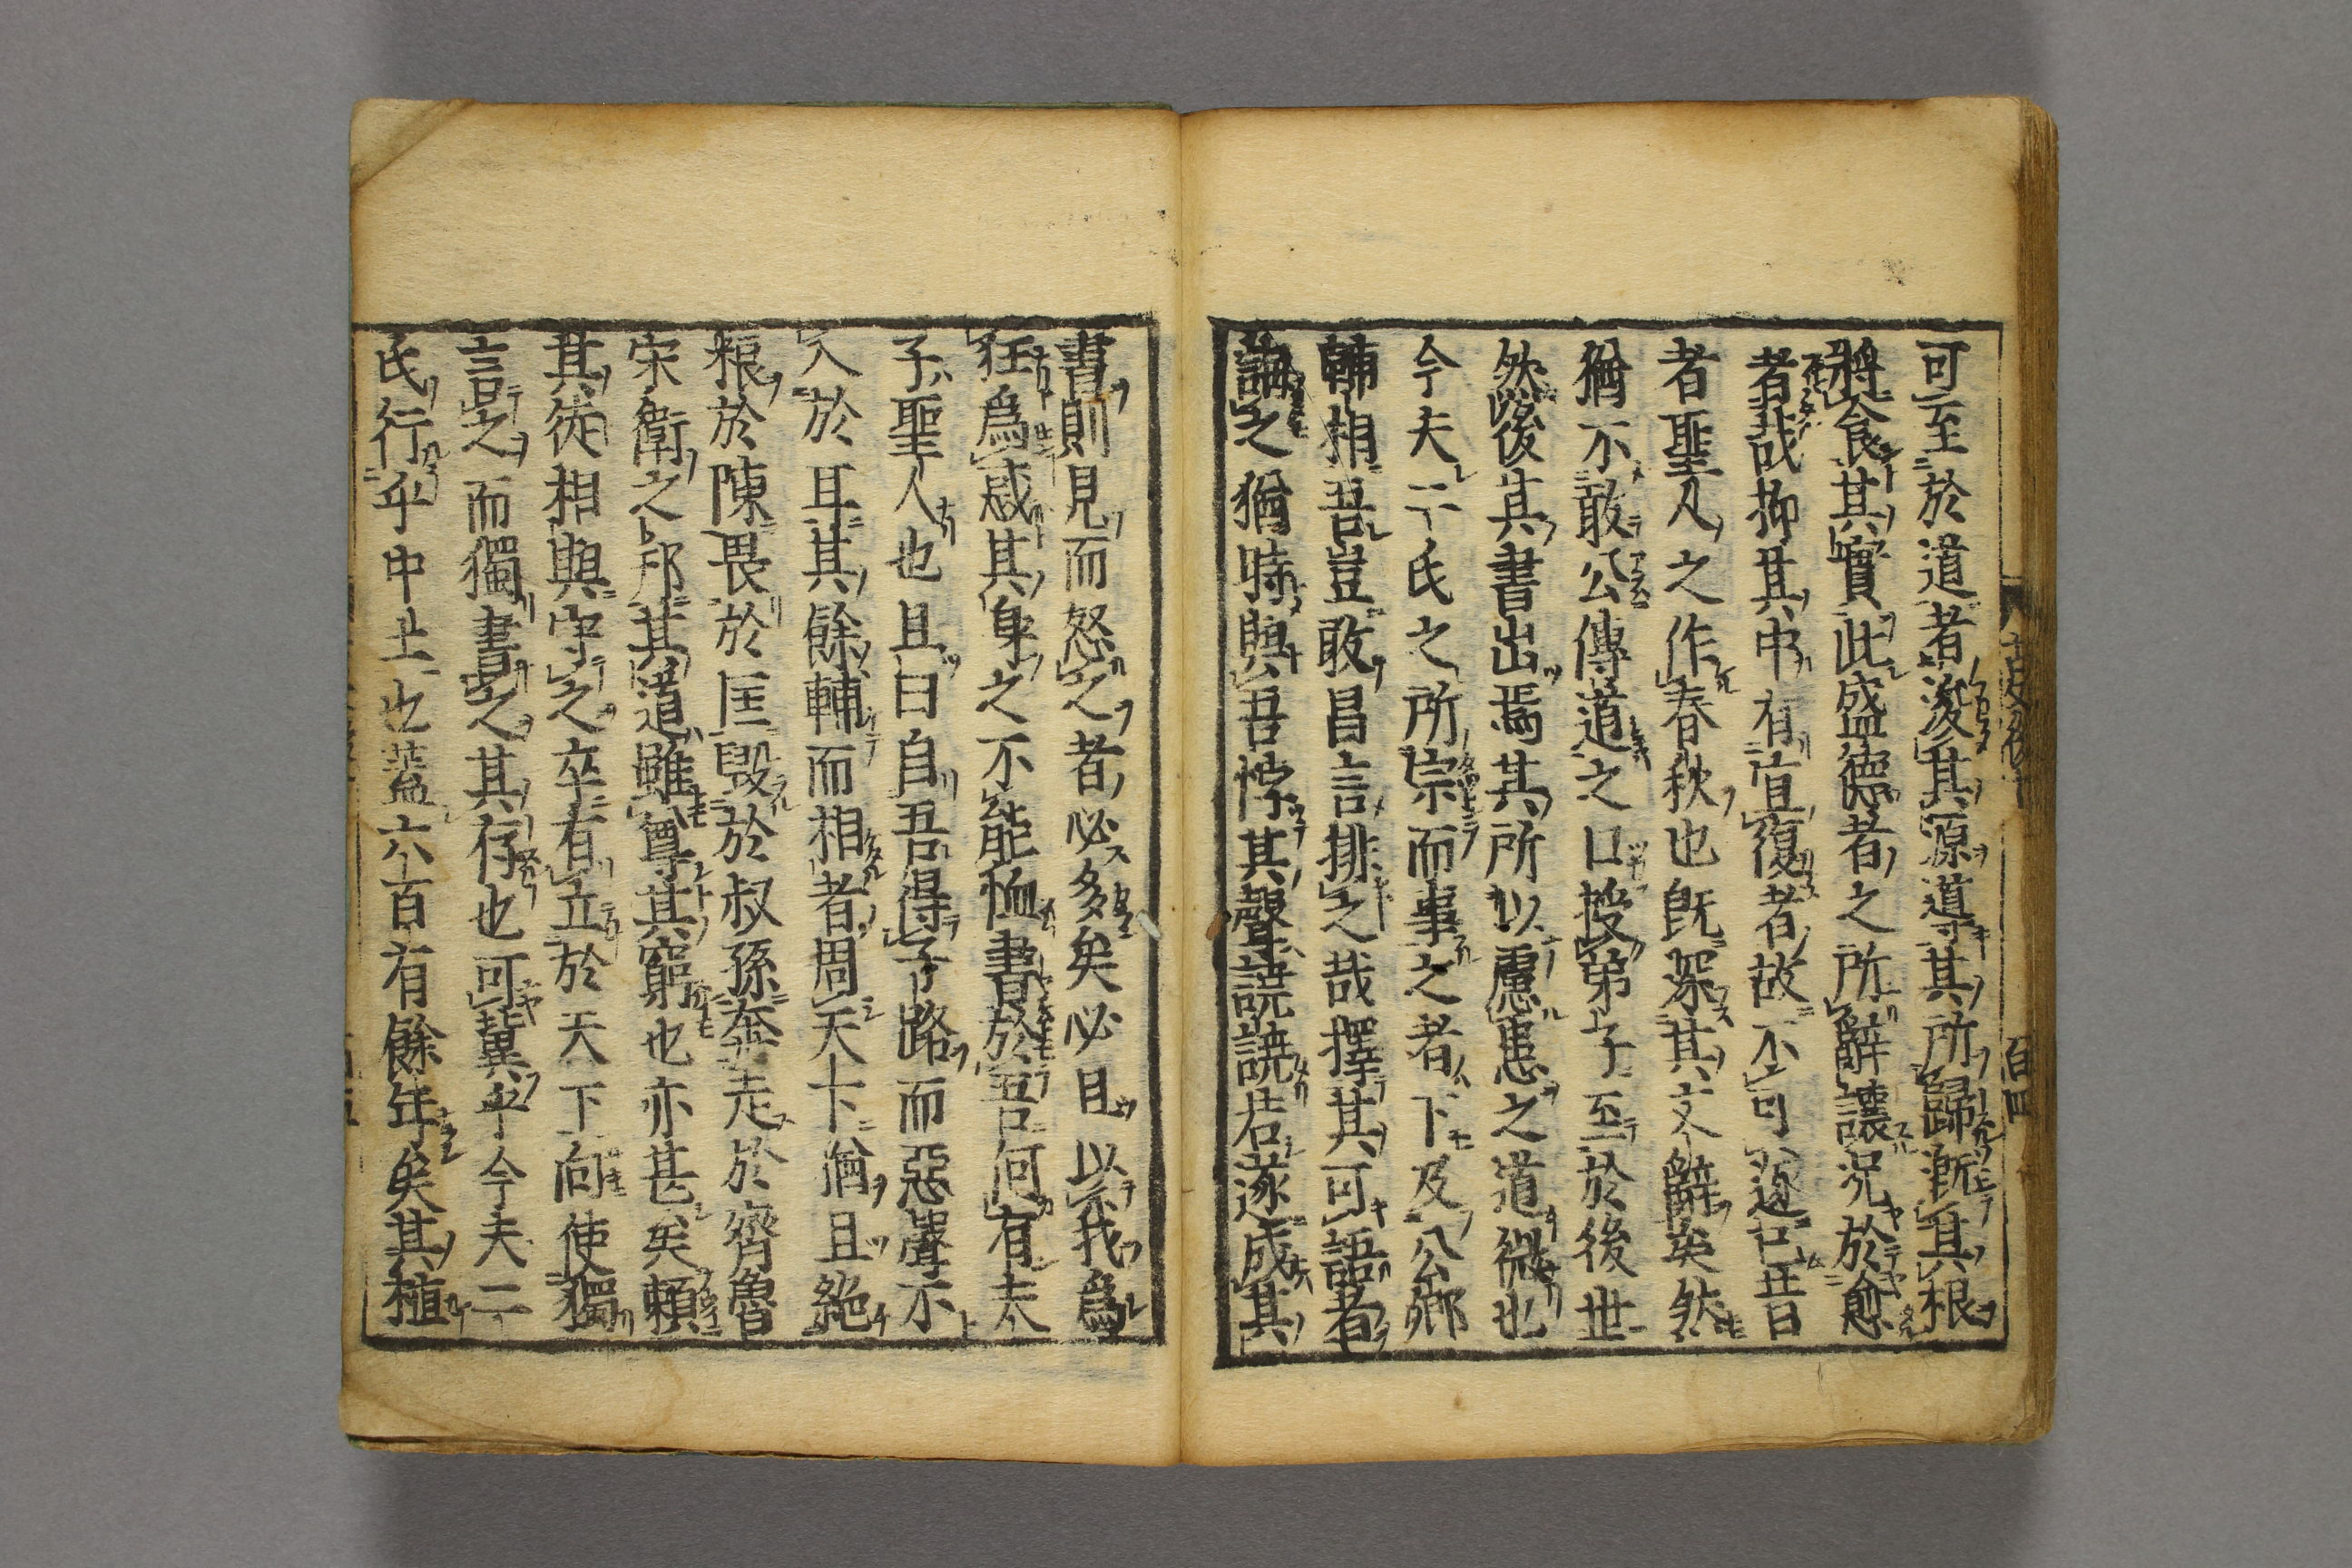 可至於道者浚其源導其所歸漑其根
將食其實此盛德者之所辭讓況於愈
者哉抑其中有宜復者故不可遂已昔
者聖人之作春秋也既深其文辭矣然
猶不敢公傳道之口授弟子至於後世
然後其書出焉其所以慮患之道微也
今夫二氏之所宗而事之者下及公卿
輔相吾豈敢昌言排之哉擇其可語者
誨之猶時與吾悖其聲譊譊若遂成其
書則見而怒之者必多矣必且以我爲
狂爲惑其身之不能恤書於吾何有夫
子聖人也且曰自吾得子路而惡聲不
入於耳其餘輔而相者周天下猶且絶
粮於陳畏於匡毀於叔孫奔走於齊魯
宋衛之邦其道雖尊其窮也亦甚矣頼
其徒相與守之卒有立於天下向使獨
言之而獨書之其存也可冀乎今夫二
氏行乎中土也蓋六百有餘年矣其植